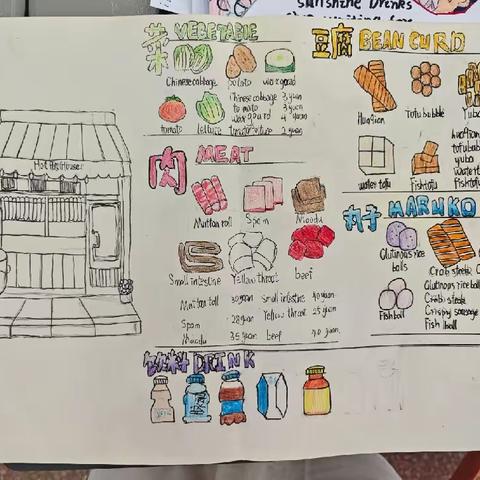 sunshine Drinks
Hot Pot House
菜 VEGETABLE
Chinese cabbage potato wax gourd
tomato lettuce
Chinese cabbage 3 yuan
tomato 3 yuan
wax gourd 4 yuan
2 yuan
肉 MEAT
Mutton roll Spam Maodu
Small intestine Yellow throat beef
Mutton roll 30 yuan small intestine 40 yuan
Spam 28 yuan Yellow throat 25 yuan
Maodu 35 yuan beef 40 yuan
饮料 DRINK
豆腐 BEAN CURD
Huofian Tofu bubble Yuba
water tofu Fishtofu
Huofian
tofu bubble
yuba
water t
Fishtofu
丸子 MARUKO
Glutinous rice balls
Crab steak C
Fish ball
Glutinous rice ball
Crab steak
Crispy sausage
Fish ball